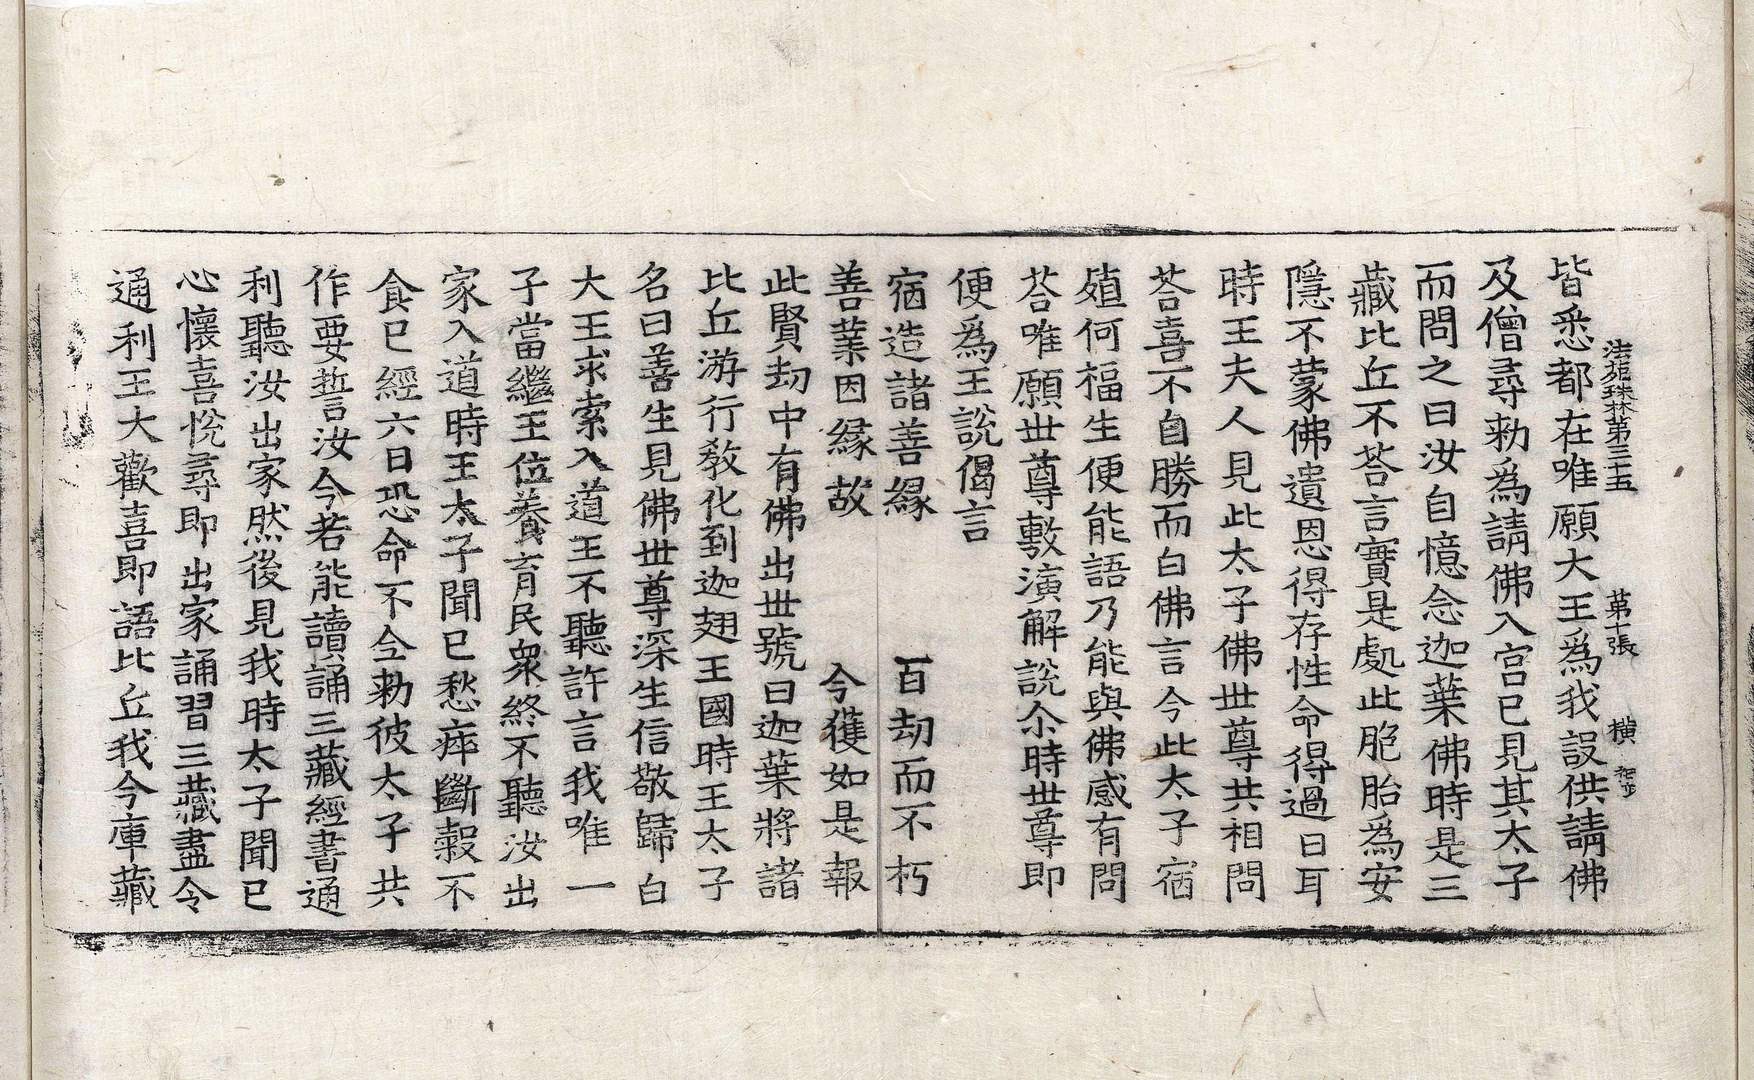 法苑珠林第三十五　第十張　橫
皆悉都在唯願大王爲我設供請佛
及僧尋勑爲請佛入宮已見其太子
而問之曰汝自憶念迦葉佛時是三
藏比丘不荅言實是處此胞胎爲安
隱不蒙佛遺恩得存性命得過日耳
時王夫人見此太子佛世尊共相問
荅喜不自勝而白佛言今此太子宿
殖何福生便能語乃能與佛感有問
荅唯願世尊敷演解說尒時世尊即
便爲王說偈言
宿造諸善緣　百劫而不朽
善業因緣故　今獲如是報
此賢劫中有佛出世號曰迦葉將諸
比丘游行敎化到迦翅王國時王太子
名曰善生見佛世尊深生信敬歸白
大王求索入道王不聽許言我唯一
子當繼王位養育民衆終不聽汝出
家入道時王太子聞已愁瘁斷穀不
食已經六日恐命不全勑彼太子共
作要誓汝今若能讀誦三藏經書通
利聽汝出家然後見我時太子聞已
心懷喜悅尋即出家誦習三藏盡令
通利王大歡喜即語比丘我今庫藏